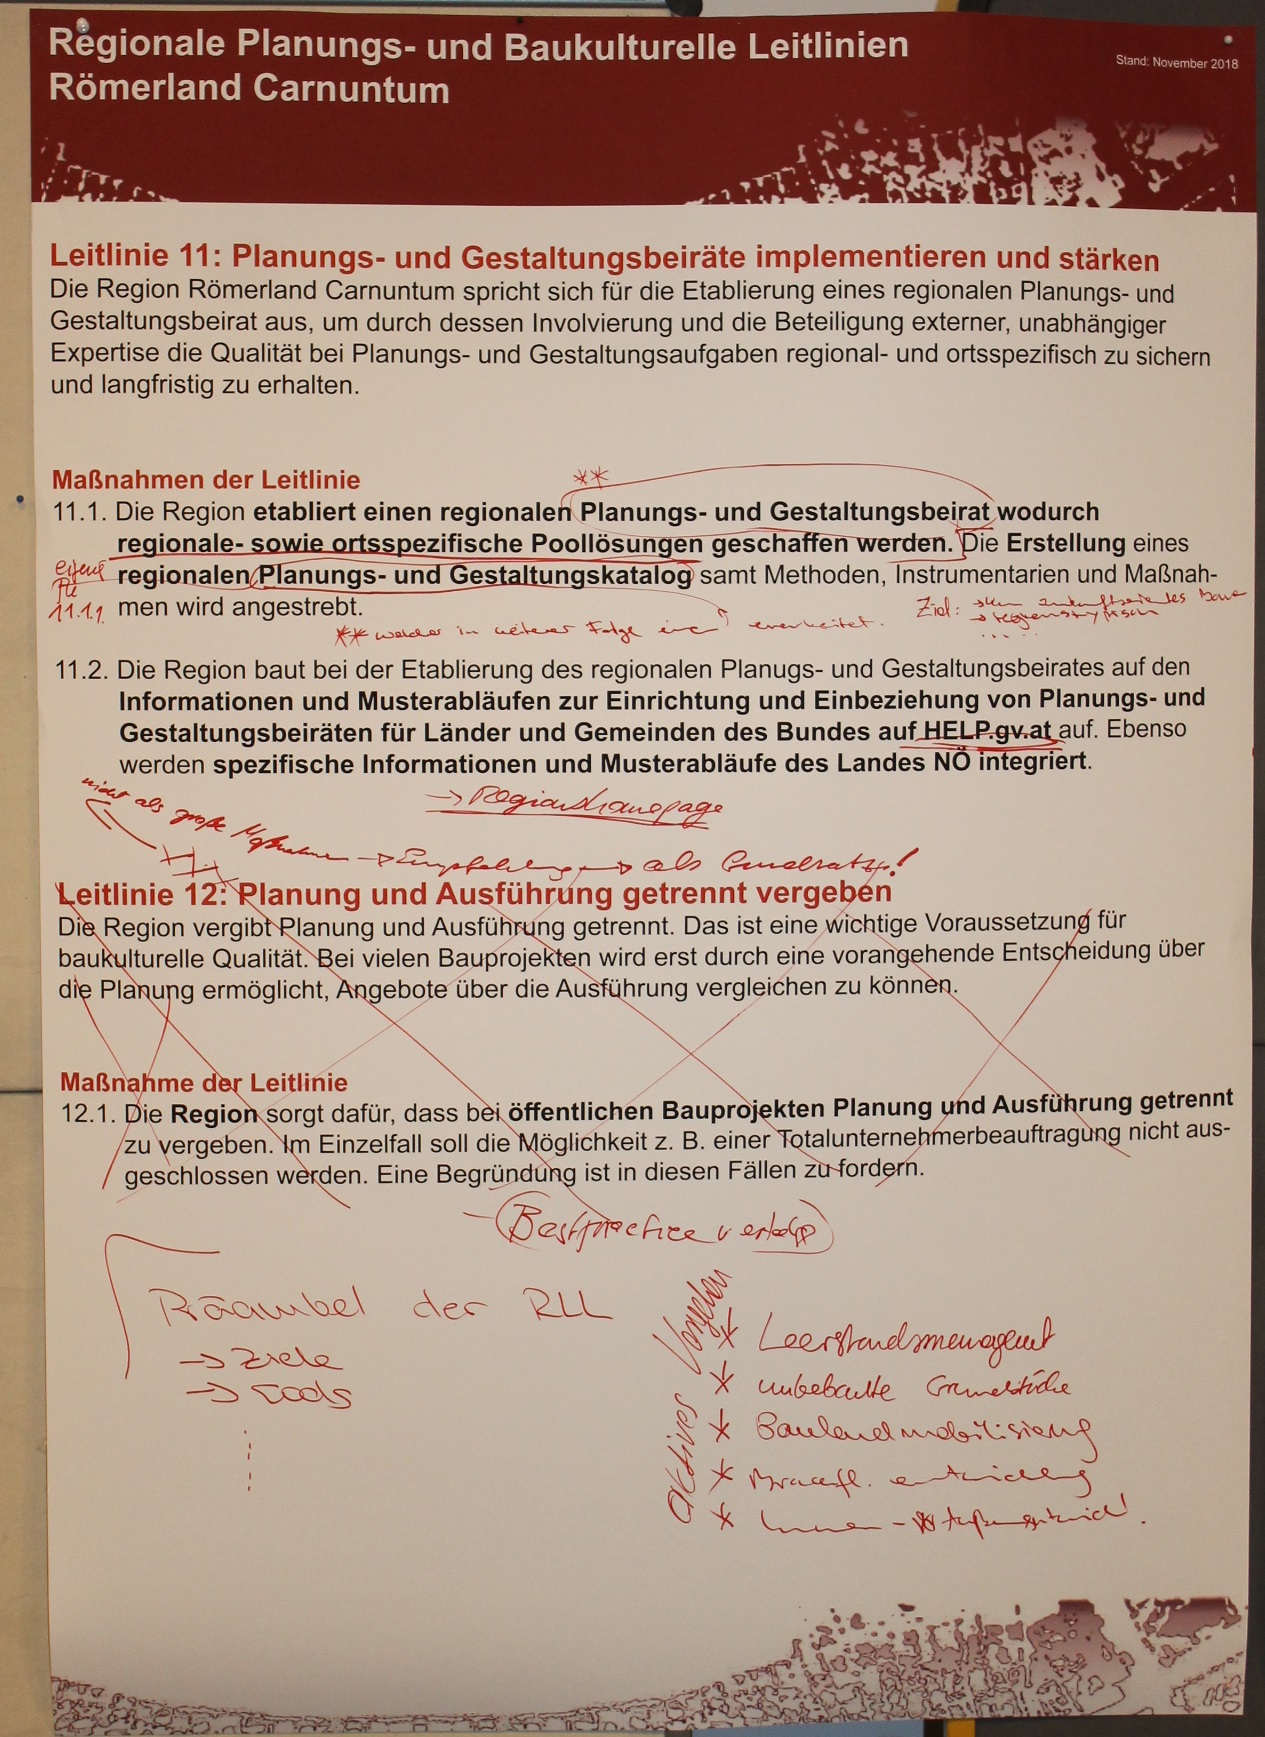 Regionale Planungs- und Baukulturelle Leitlinien
Römerland Carnuntum
Stand: November 2018
Leitlinie 11: Planungs- und Gestaltungsbeiräte implementieren und stärken
Die Region Römerland Carnuntum spricht sich für die Etablierung eines regionalen Planungs- und
Gestaltungsbeirat aus, um durch dessen Involvierung und die Beteiligung externer, unabhängiger
Expertise die Qualität bei Planungs- und Gestaltungsaufgaben regional- und ortsspezifisch zu sichern
und langfristig zu erhalten.
Maßnahmen der Leitlinie
**
11.1. Die Region etabliert einen regionalen Planungs- und Gestaltungsbeirat wodurch
regionale- sowie ortsspezifische Poollösungen geschaffen werden. Die Erstellung eines
regionalen Planungs- und Gestaltungskatalog samt Methoden, Instrumentarien und Maßnah-
men wird angestrebt.
11.1.1
Ziel:
** welcher in weiterer Folge einen erarbeitet.
11.2. Die Region baut bei der Etablierung des regionalen Planugs- und Gestaltungsbeirates auf den
Informationen und Musterabläufen zur Einrichtung und Einbeziehung von Planungs- und
Gestaltungsbeiräten für Länder und Gemeinden des Bundes auf HELP.gv.at auf. Ebenso
werden spezifische Informationen und Musterabläufe des Landes NÖ integriert.
→ Regionshomepage
nicht als große Maßnahmen → Empfehlung → als Grundsatz!
Leitlinie 12: Planung und Ausführung getrennt vergeben
Die Region vergibt Planung und Ausführung getrennt. Das ist eine wichtige Voraussetzung für
baukulturelle Qualität. Bei vielen Bauprojekten wird erst durch eine vorangehende Entscheidung über
die Planung ermöglicht, Angebote über die Ausführung vergleichen zu können.
Maßnahme der Leitlinie
12.1. Die Region sorgt dafür, dass bei öffentlichen Bauprojekten Planung und Ausführung getrennt
zu vergeben. Im Einzelfall soll die Möglichkeit z. B. einer Totalunternehmerbeauftragung nicht aus-
geschlossen werden. Eine Begründung ist in diesen Fällen zu fordern.
– Bestpractice
Präambel der RLL
→ Ziele
→ Goals
Aktives Vorgehen
* Leerstandsmanagement
* unbebaute Grundstücke
* Baulandmobilisierung
* Brachfl. entwicklung
* Innen- Außenentwickl.